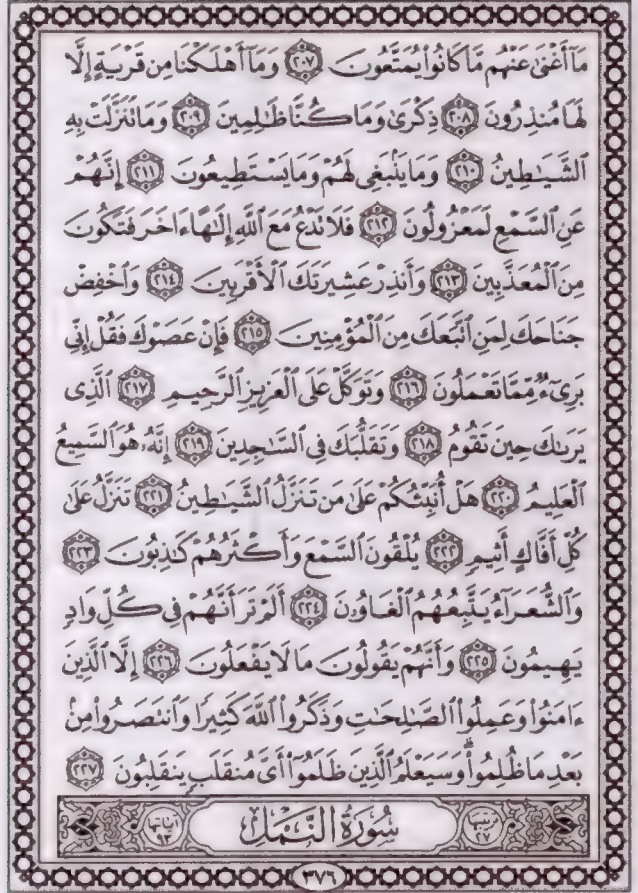 مَآ أَغْنَىٰ عَنْهُم مَّا كَانُوا۟ يُمَتَّعُونَ ﴿٢٠٧﴾ وَمَآ أَهْلَكْنَا مِن قَرْيَةٍ إِلَّا
لَهَا مُنذِرُونَ ﴿٢٠٨﴾ ذِكْرَىٰ وَمَا كُنَّا ظَٰلِمِينَ ﴿٢٠٩﴾ وَمَا تَنَزَّلَتْ بِهِ
ٱلشَّيَٰطِينُ ﴿٢١٠﴾ وَمَا يَنۢبَغِى لَهُمْ وَمَا يَسْتَطِيعُونَ ﴿٢١١﴾ إِنَّهُمْ
عَنِ ٱلسَّمْعِ لَمَعْزُولُونَ ﴿٢١٢﴾ فَلَا تَدْعُ مَعَ ٱللَّهِ إِلَٰهًا ءَاخَرَ فَتَكُونَ
مِنَ ٱلْمُعَذَّبِينَ ﴿٢١٣﴾ وَأَنذِرْ عَشِيرَتَكَ ٱلْأَقْرَبِينَ ﴿٢١٤﴾ وَٱخْفِضْ
جَنَاحَكَ لِمَنِ ٱتَّبَعَكَ مِنَ ٱلْمُؤْمِنِينَ ﴿٢١٥﴾ فَإِنْ عَصَوْكَ فَقُلْ إِنِّى
بَرِىٓءٌ مِّمَّا تَعْمَلُونَ ﴿٢١٦﴾ وَتَوَكَّلْ عَلَى ٱلْعَزِيزِ ٱلرَّحِيمِ ﴿٢١٧﴾ ٱلَّذِى
يَرَىٰكَ حِينَ تَقُومُ ﴿٢١٨﴾ وَتَقَلُّبَكَ فِى ٱلسَّٰجِدِينَ ﴿٢١٩﴾ إِنَّهُۥ هُوَ ٱلسَّمِيعُ
ٱلْعَلِيمُ ﴿٢٢٠﴾ هَلْ أُنَبِّئُكُمْ عَلَىٰ مَن تَنَزَّلُ ٱلشَّيَٰطِينُ ﴿٢٢١﴾ تَنَزَّلُ عَلَىٰ
كُلِّ أَفَّاكٍ أَثِيمٍ ﴿٢٢٢﴾ يُلْقُونَ ٱلسَّمْعَ وَأَكْثَرُهُمْ كَٰذِبُونَ ﴿٢٢٣﴾
وَٱلشُّعَرَآءُ يَتَّبِعُهُمُ ٱلْغَاوُۥنَ ﴿٢٢٤﴾ أَلَمْ تَرَ أَنَّهُمْ فِى كُلِّ وَادٍ
يَهِيمُونَ ﴿٢٢٥﴾ وَأَنَّهُمْ يَقُولُونَ مَا لَا يَفْعَلُونَ ﴿٢٢٦﴾ إِلَّا ٱلَّذِينَ
ءَامَنُوا۟ وَعَمِلُوا۟ ٱلصَّٰلِحَٰتِ وَذَكَرُوا۟ ٱللَّهَ كَثِيرًا وَٱنتَصَرُوا۟ مِنۢ
بَعْدِ مَا ظُلِمُوا۟ ۗ وَسَيَعْلَمُ ٱلَّذِينَ ظَلَمُوٓا۟ أَىَّ مُنقَلَبٍ يَنقَلِبُونَ ﴿٢٢٧﴾
ترتيبها ٢٧ سُورَةُ ٱلنَّمْلِ آياتها ٩٣
٣٧٦